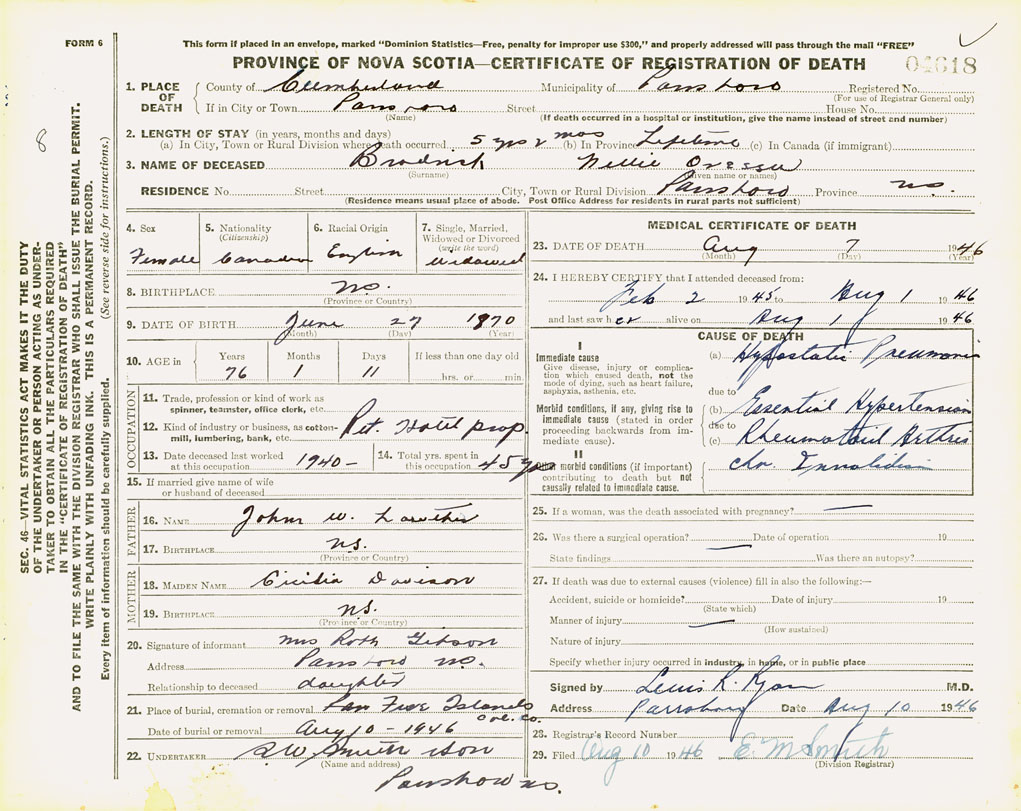 FORM 6
This form if placed in an envelope, marked "Dominion Statistics—Free, penalty for improper use $300," and properly addressed will pass through the mail "FREE"
PROVINCE OF NOVA SCOTIA—CERTIFICATE OF REGISTRATION OF DEATH
04618
1. PLACE OF DEATH
County of Cumberland Municipality of Parrsboro Registered No.
(For use of Registrar General only)
If in City or Town Parrsboro Street House No.
(Name) (If death occurred in a hospital or institution, give the name instead of street and number)
2. LENGTH OF STAY (in years, months and days)
(a) In City, Town or Rural Division where death occurred 5 yrs 2 mos (b) In Province Lifetime (c) In Canada (if immigrant)
3. NAME OF DECEASED Brodrick Nellie
(Surname) (Given name or names)
RESIDENCE No. Street City, Town or Rural Division Parrsboro Province N.S.
(Residence means usual place of abode. Post Office Address for residents in rural parts not sufficient)
4. Sex Female
5. Nationality (Citizenship) Canadian
6. Racial Origin English
7. Single, Married, Widowed or Divorced (write the word) Widowed
8. BIRTHPLACE N.S.
(Province or Country)
9. DATE OF BIRTH June 27 1870
(Month) (Day) (Year)
10. AGE in Years Months Days If less than one day old
76 1 11 hrs. or min.
OCCUPATION
11. Trade, profession or kind of work as spinner, teamster, office clerk, etc.
12. Kind of industry or business, as cotton-mill, lumbering, bank, etc. Ret. Hotel prop.
13. Date deceased last worked at this occupation 1940 -
14. Total yrs. spent in this occupation 45 yrs
15. If married give name of wife or husband of deceased
FATHER
16. NAME John W. Lowther
17. BIRTHPLACE N.S.
(Province or Country)
MOTHER
18. MAIDEN NAME Davison
19. BIRTHPLACE N.S.
(Province or Country)
20. Signature of informant Mrs Gibson
Address Parrsboro N.S.
Relationship to deceased daughter
21. Place of burial, cremation or removal Five Islands Col. Co.
Date of burial or removal Aug 10 - 1946
22. UNDERTAKER Smith & Son
(Name and address)
Parrsboro N.S.
MEDICAL CERTIFICATE OF DEATH
23. DATE OF DEATH Aug 7 1946
(Month) (Day) (Year)
24. I HEREBY CERTIFY that I attended deceased from:
Feb 2 1945 to Aug 1 1946
and last saw her alive on Aug 1 1946
CAUSE OF DEATH
I
Immediate cause
Give disease, injury or complication which caused death, not the mode of dying, such as heart failure, asphyxia, asthenia, etc.
(a) Hypostatic Pneumonia
due to
Morbid conditions, if any, giving rise to immediate cause (stated in order proceeding backwards from immediate cause).
(b) Essential Hypertension
due to
(c) Rheumatoid Arthris
II
Other morbid conditions (if important) contributing to death but not causally related to immediate cause.
chr. Invalidism
25. If a woman, was the death associated with pregnancy? —
26. Was there a surgical operation? — Date of operation 19
State findings Was there an autopsy?
27. If death was due to external causes (violence) fill in also the following:—
Accident, suicide or homicide? Date of injury 19
(State which)
Manner of injury —
(How sustained)
Nature of injury
Specify whether injury occurred in industry, in home, or in public place
Signed by Lewis R. Ryan M.D.
Address Parrsboro Date Aug 10 1946
28. Registrar's Record Number
29. Filed Aug 10 1946 E. M Smith
(Division Registrar)
8
SEC. 46—VITAL STATISTICS ACT MAKES IT THE DUTY
OF THE UNDERTAKER OR PERSON ACTING AS UNDER-
TAKER TO OBTAIN ALL THE PARTICULARS REQUIRED
IN THE "CERTIFICATE OF REGISTRATION OF DEATH"
AND TO FILE THE SAME WITH THE DIVISION REGISTRAR WHO SHALL ISSUE THE BURIAL PERMIT.
WRITE PLAINLY WITH UNFADING INK. THIS IS A PERMANENT RECORD.
Every item of information should be carefully supplied. (See reverse side for instructions.)